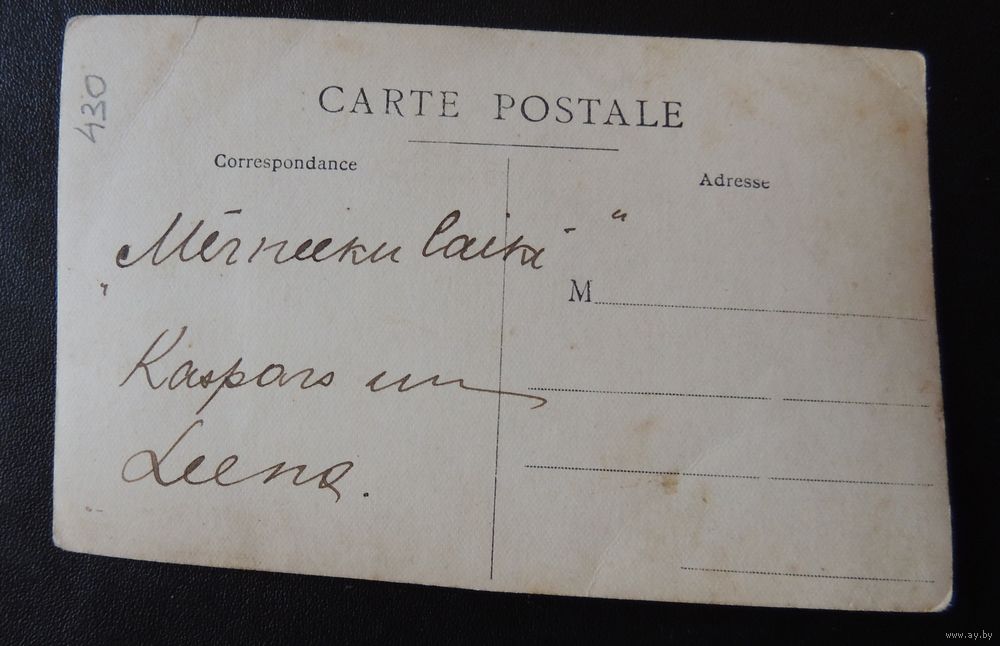 430
CARTE POSTALE
Correspondance
Adresse
„Mērneeku laiki“
M
Kaspars un
Leena.
www.ay.by